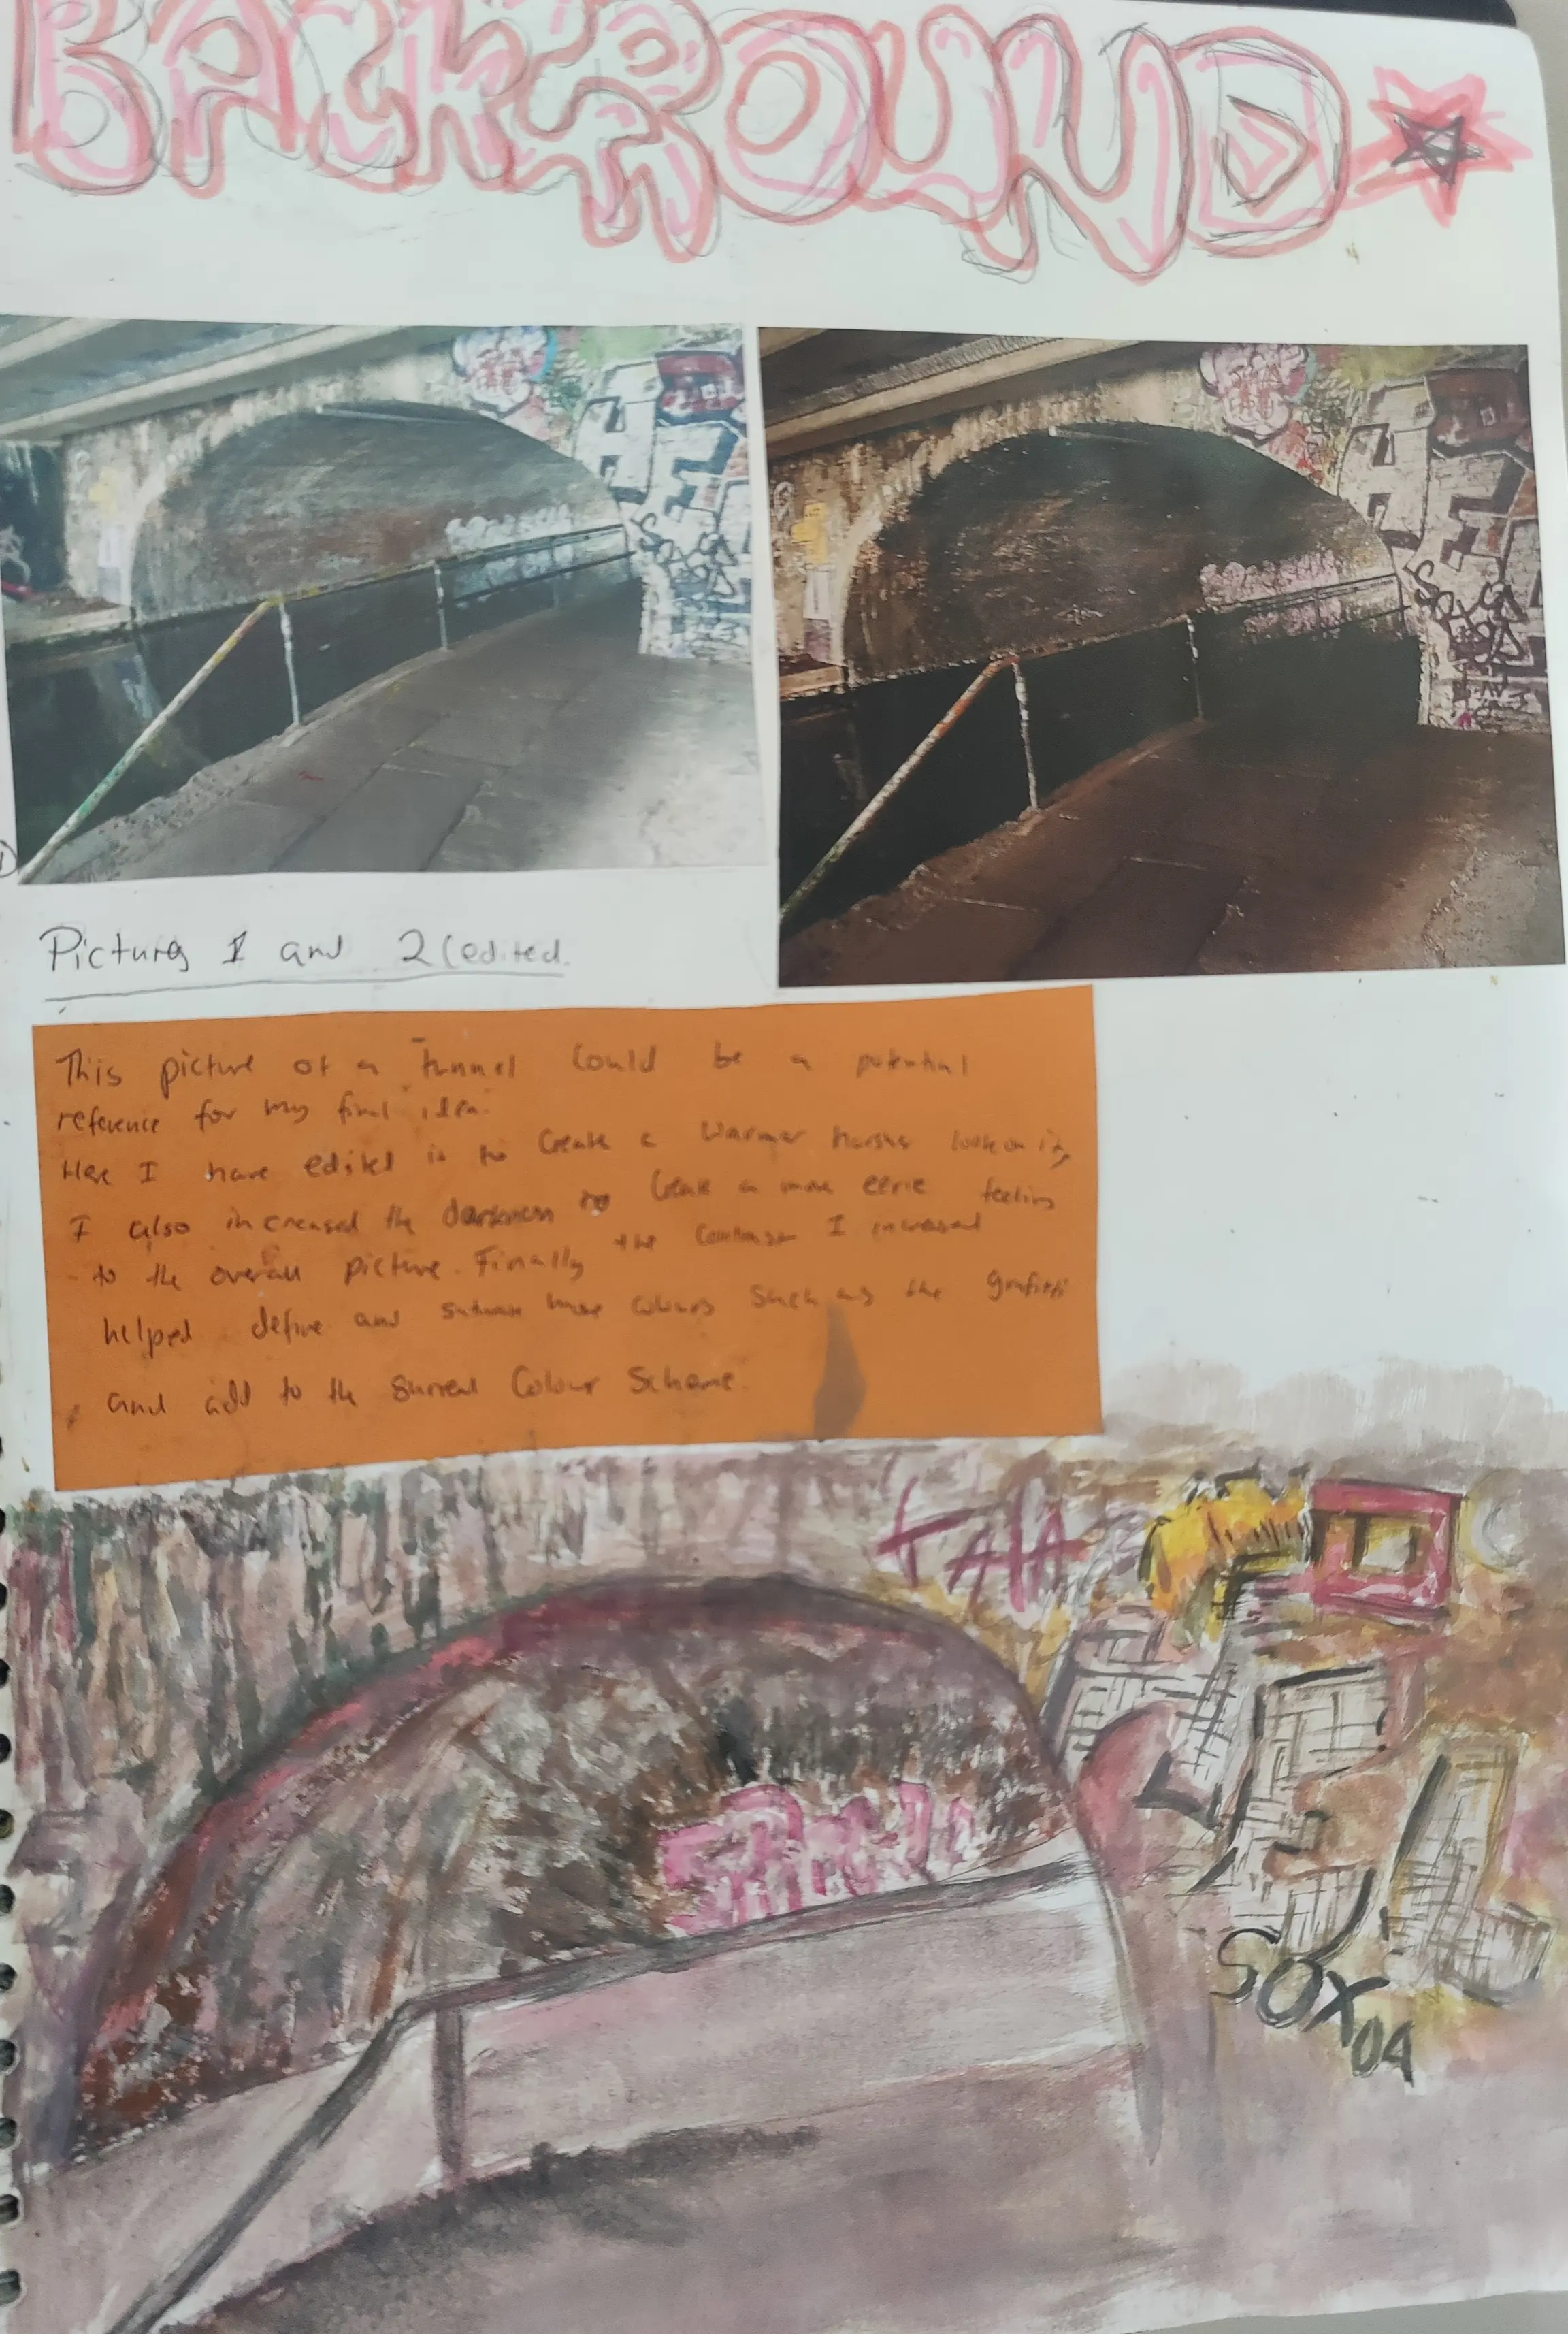 BACKROUND
Pictures 1 and 2 (edited.
This picture of a tunnel could be a potential
reference for my final idea.
Here I have edited it to create a warmer harsher look on it,
I also increased the darkness to create a more eerie feeling
to the overall picture. Finally the contrast I increased
helped define and more colours such as the grafitti
and add to the surreal colour scheme.
TAIA
SOX
04